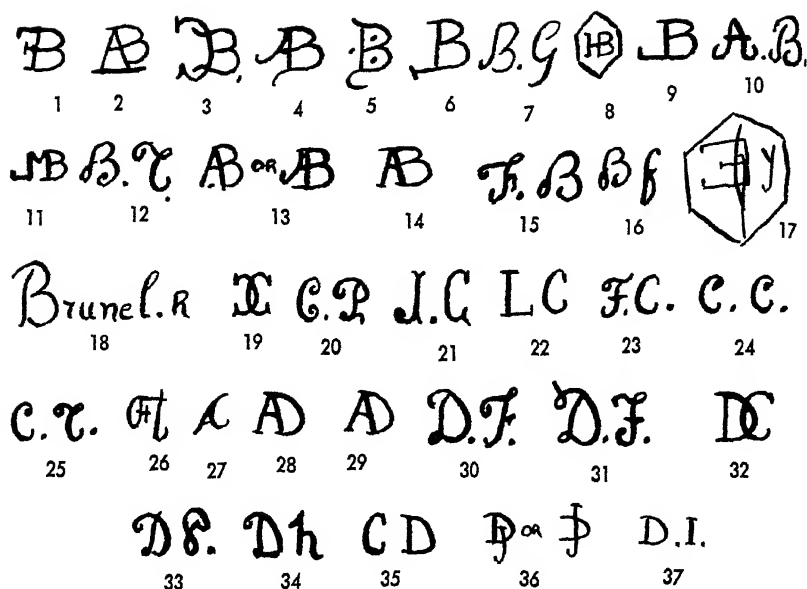 B AB B. AB B B B. G HB B A.B.
1 2 3 4 5 6 7 8 9 10
MB B. T. AB OR AB AB F. B B f y
11 12 13 14 15 16 17
Brunel. R C C.P. J.C LC F.C. C.C.
18 19 20 21 22 23 24
C. T. A AD AD D.F. D.F. DC
25 26 27 28 29 30 31 32
D P. D h C D OR D.I.
33 34 35 36 37